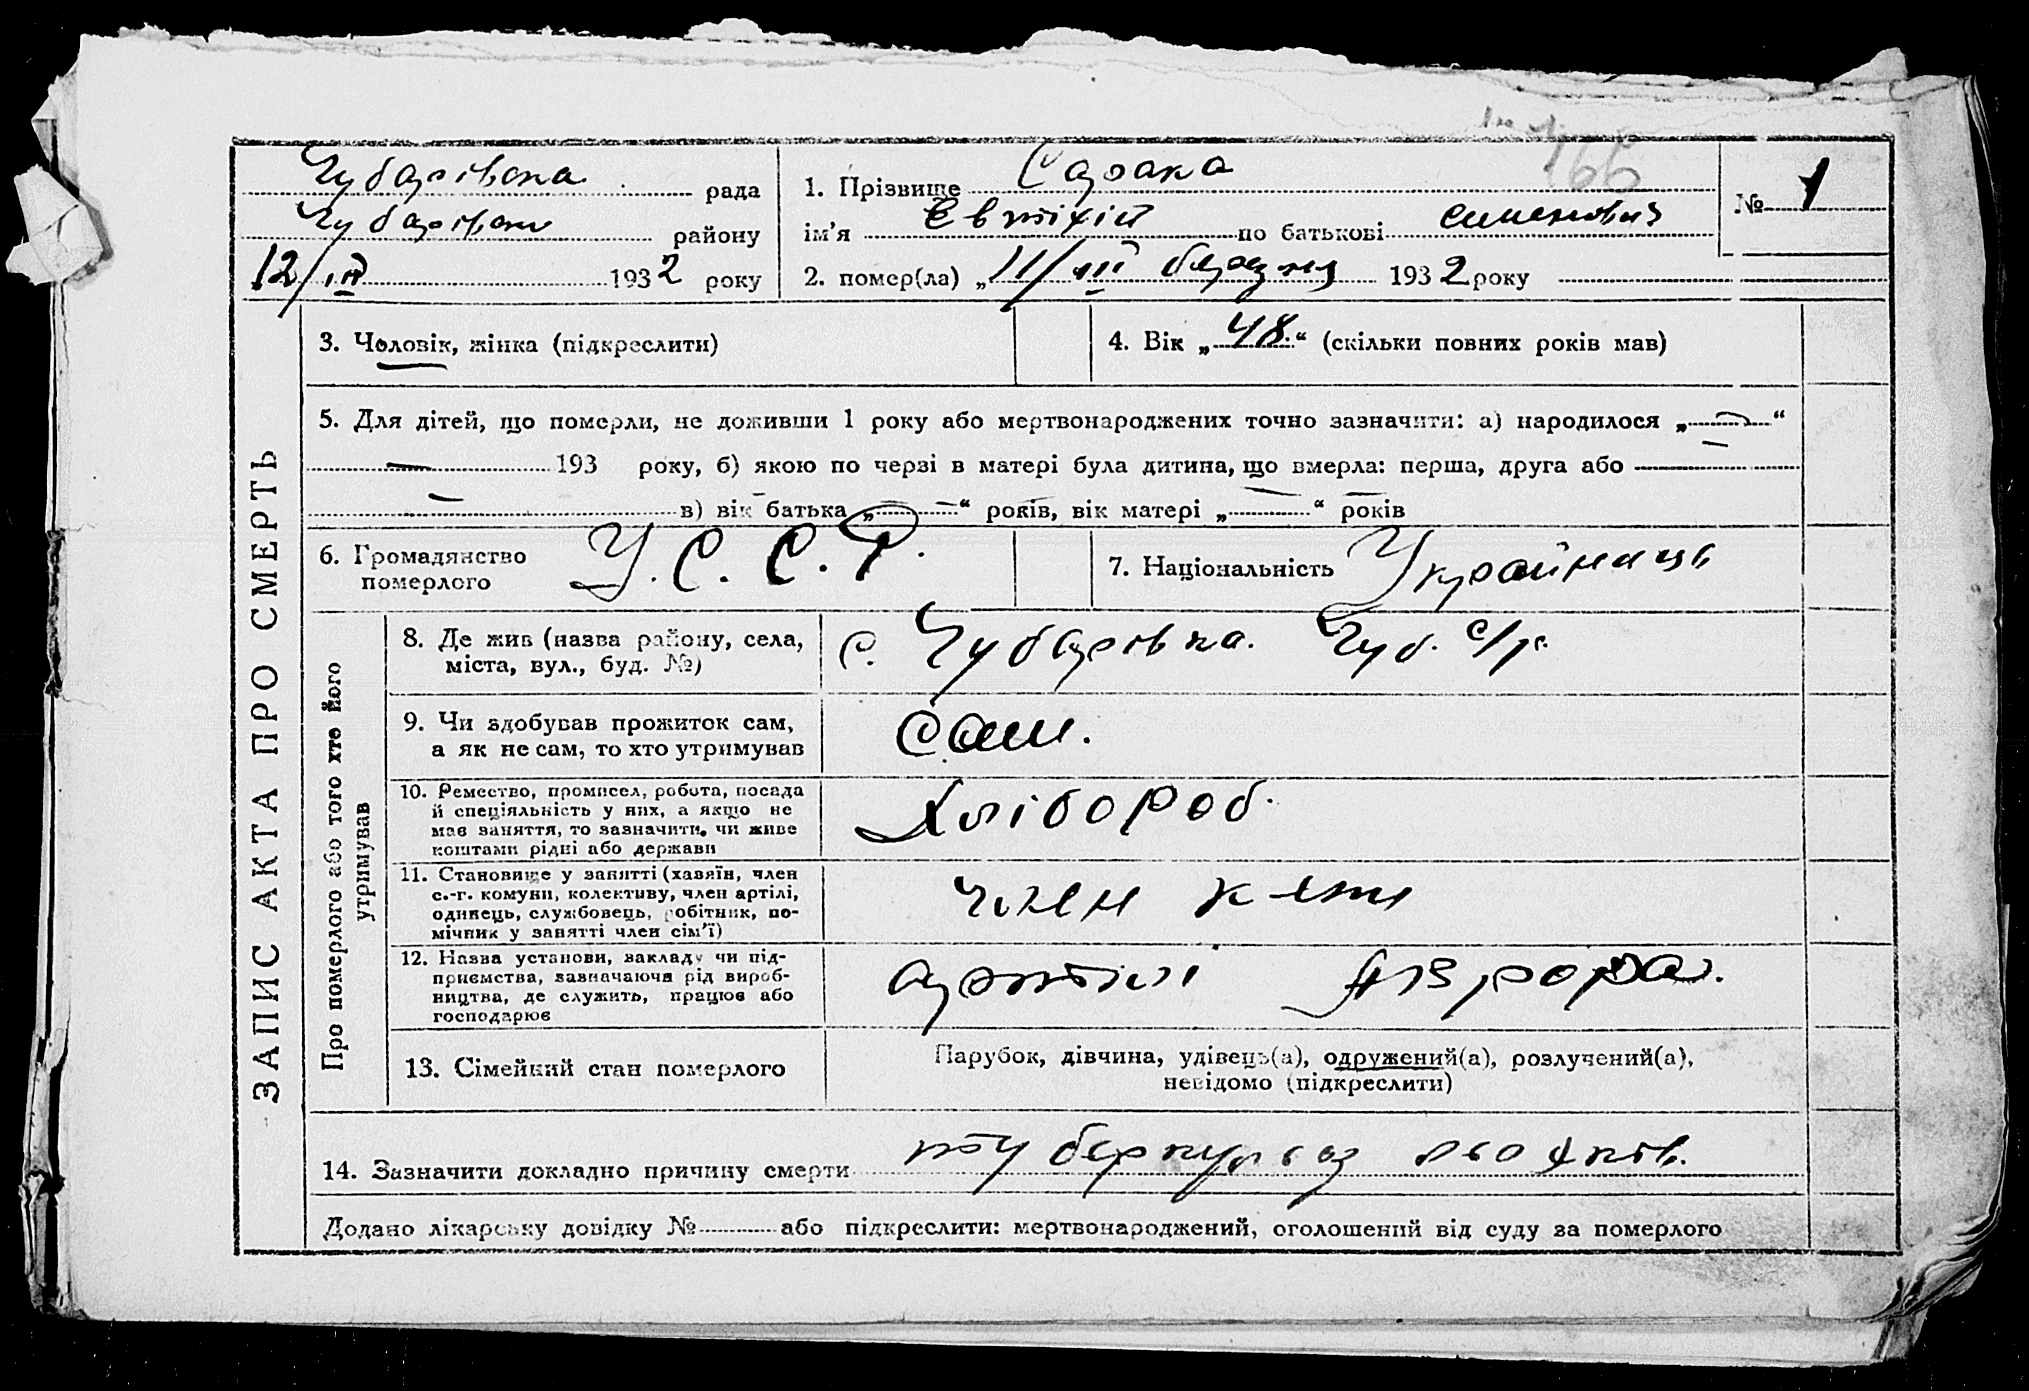 166
Чубарівска рада
Чубарівськ району
12/ІІІ 1932 року
1. Прізвище Сарана
№ 1
ім'я Євтіхій по батькові Семенович
2. помер(ла) „11/ІІІ березня 1932 року
ЗАПИС АКТА ПРО СМЕРТЬ
3. Чоловік, жінка (підкреслити)
4. Вік „48“ (скільки повних років мав)
5. Для дітей, що померли, не доживши 1 року або мертвонароджених точно зазначити: а) народилося „—“
— 193 року, б) якою по черзі в матері була дитина, що вмерла: перша, друга або
— в) вік батька „—“ років, вік матері „—“ років
6. Громадянство
померлого
У. С. С. Р.
7. Національність Украйнець
Про померлого або того хто його
утримував
8. Де жив (назва району, села,
міста, вул., буд. №)
с. Чубарівка. Чуб. с/р.
9. Чи здобував прожиток сам,
а як не сам, то хто утримував
Сам.
10. Ремество, промисел, робота, посада
й спеціяльність у них, а якщо не
мав заняття, то зазначити, чи живе
коштами рідні або держави
Хлібороб.
11. Становище у занятті (хазяїн, член
с.-г. комуни, колективу, член артілі,
одинець, службовець, робітник, по-
мічник у занятті член сім'ї)
член
12. Назва установи, закладу чи під-
приємства, зазначаючи рід вироб-
ництва, де служить, працює або
господарює
артілі Аврора.
13. Сімейний стан померлого
Парубок, дівчина, удівець(а), одружений(а), розлучений(а),
невідомо (підкреслити)
14. Зазначити докладно причину смерти туберкульоз льохків.
Додано лікарську довідку № або підкреслити: мертвонароджений, оголошений від суду за померлого